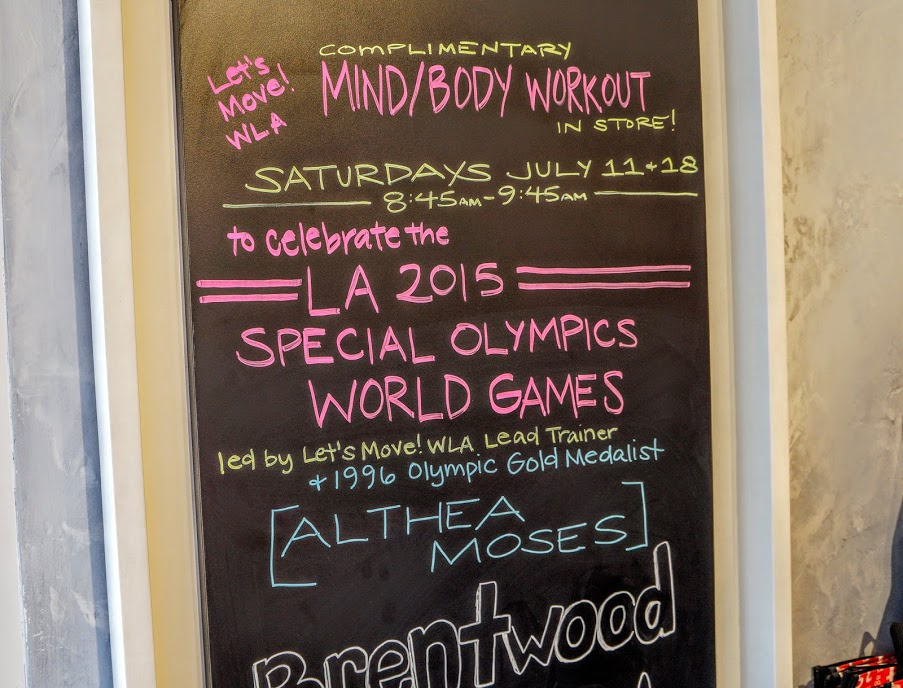 Let's
Move!
WLA
COMPLIMENTARY
MIND/BODY WORKOUT
IN STORE!
SATURDAYS JULY 11+18
8:45AM-9:45AM
to celebrate the
LA 2015
SPECIAL OLYMPICS
WORLD GAMES
led by Let's Move! WLA Lead Trainer
+ 1996 Olympic Gold Medalist
[ALTHEA
MOSES]
Brentwood